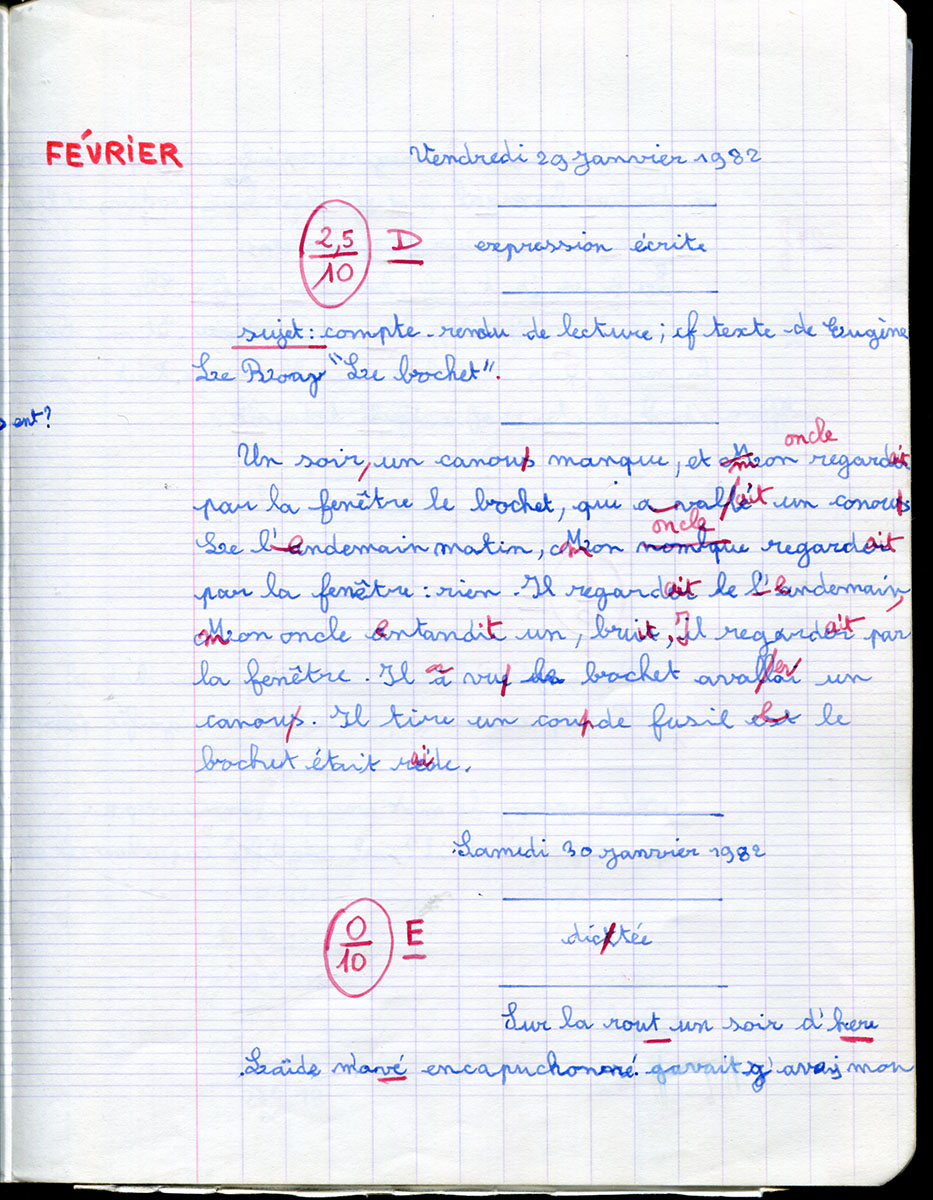 FÉVRIER
Vendredi 29 Janvier 1982
2,5
10
D
expression écrite
sujet : compte-rendu de lecture ; cf texte de Eugène
Le Roay "Le bochet".
ent?
oncle
Un soir, un canous manque, et Mon regardait
par la fenêtre le bochet, qui a vallait un conous
oncle
Le l'endemain matin, Mon regardait
par la fenêtre : rien. Il regardait le l'endemain,
Mon oncle entandit un, bruit, Il regardait par
la fenêtre. Il a vu le bochet avaller un
canous. Il tire un coup de fusil et le
bochet était raide.
Samedi 30 Janvier 1982
0
10
E
dicktée
Sur la rout un soir d'here
Laïde m'avé encapuchonné. gavait g'avais mon